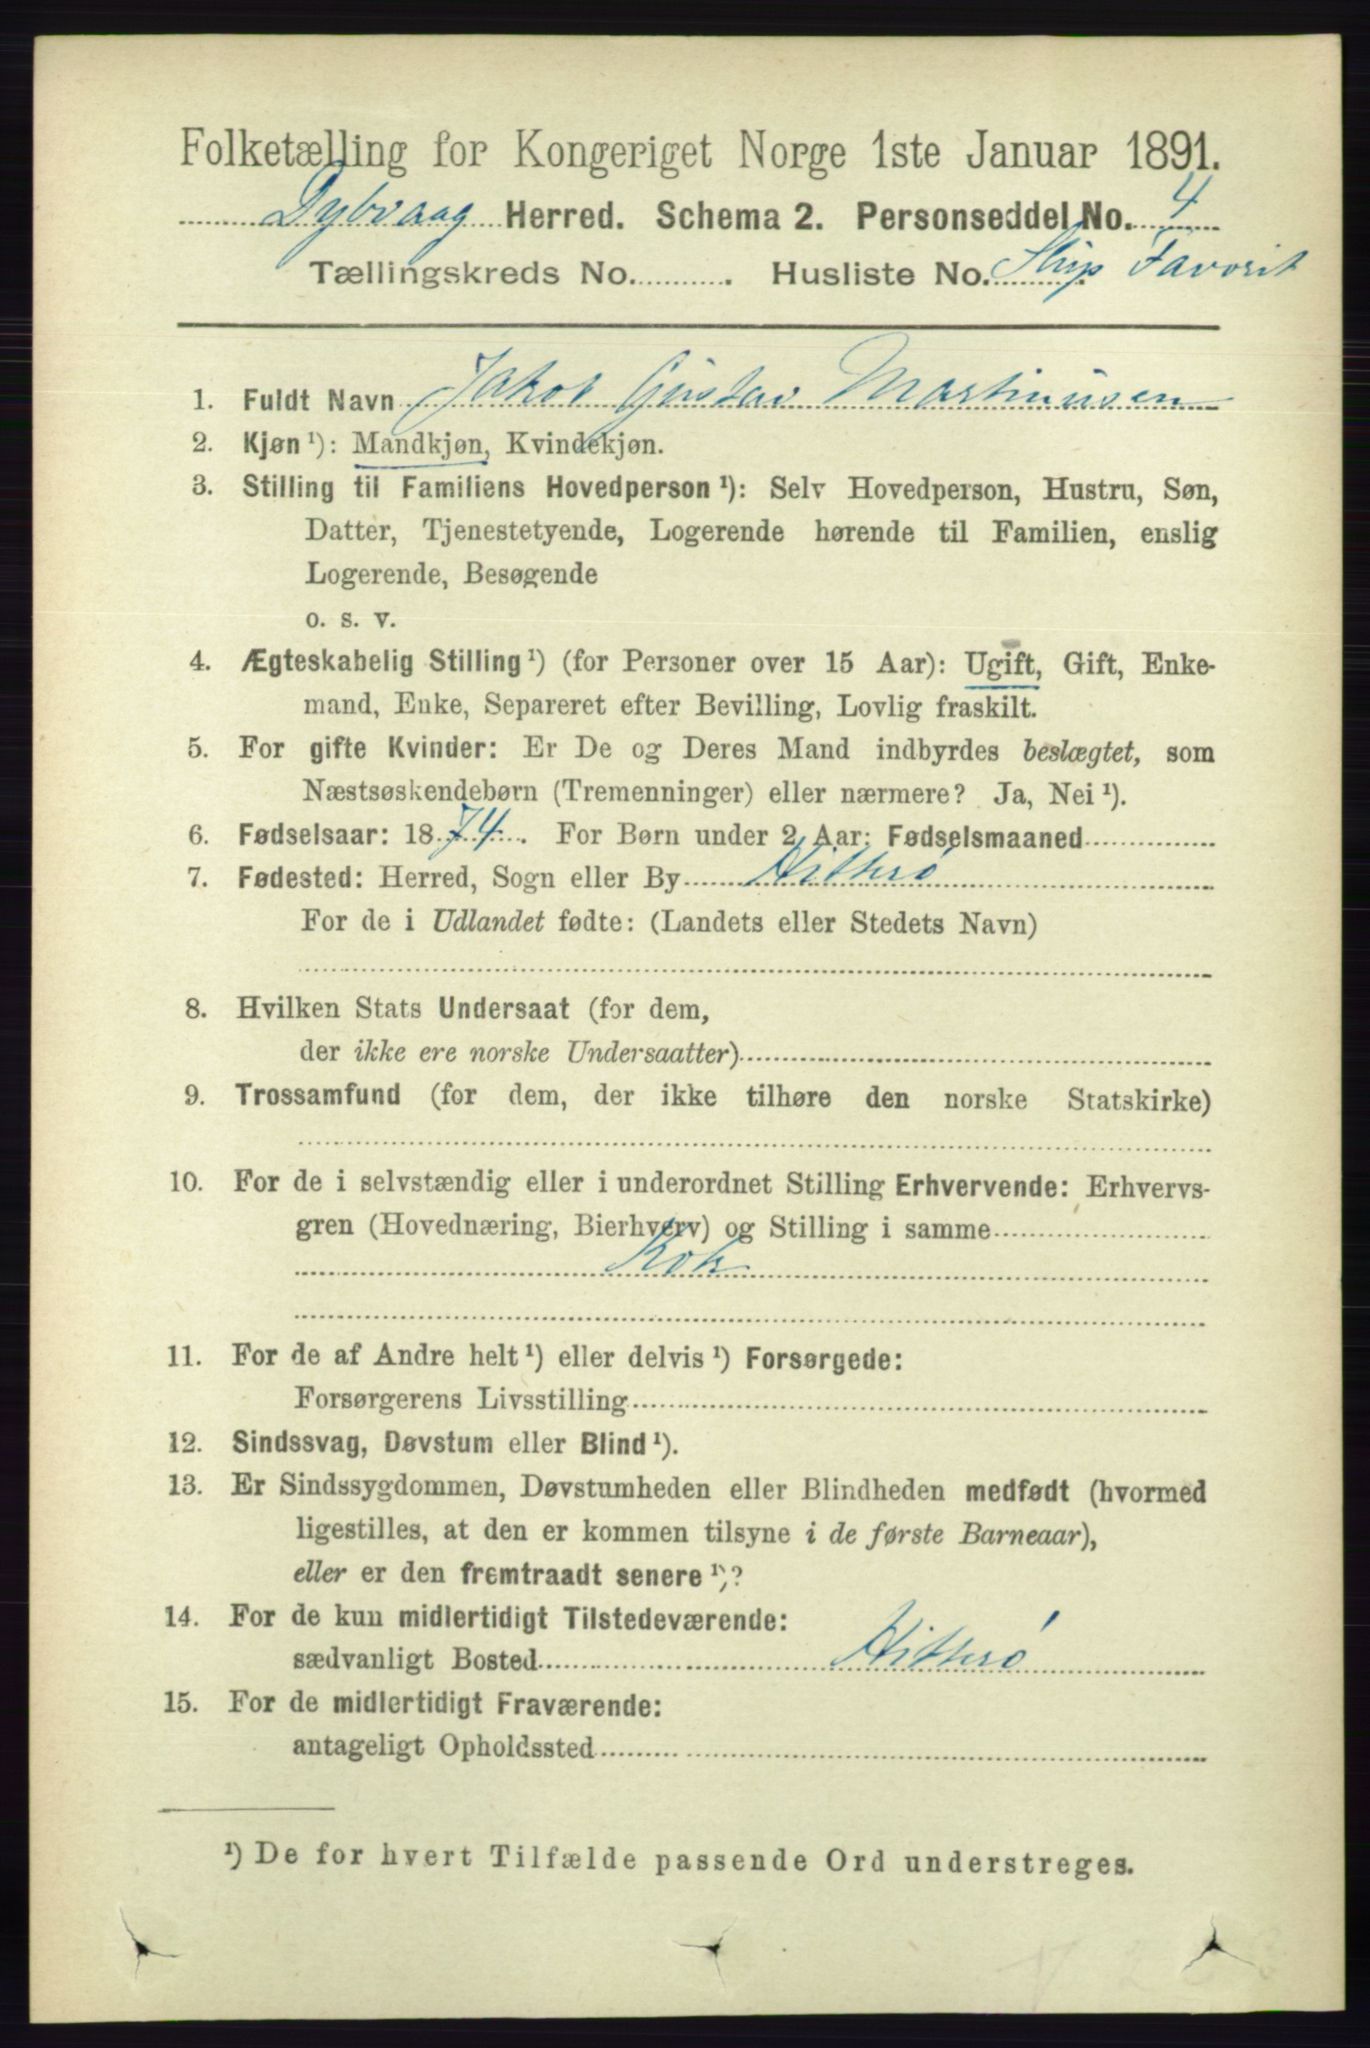 Folketælling for Kongeriget Norge 1ste Januar 1891.
Dybvaag Herred. Schema 2. Personseddel No. 4
Tællingskreds No. . Husliste No. Skip Favorit
1. Fuldt Navn Jakob Gustav Martinusen
2. Kjøn ¹): Mandkjøn, Kvindekjøn.
3. Stilling til Familiens Hovedperson ¹): Selv Hovedperson, Hustru, Søn,
Datter, Tjenestetyende, Logerende hørende til Familien, enslig
Logerende, Besøgende
o. s. v.
4. Ægteskabelig Stilling ¹) (for Personer over 15 Aar): Ugift, Gift, Enke-
mand, Enke, Separeret efter Bevilling, Lovlig fraskilt.
5. For gifte Kvinder: Er De og Deres Mand indbyrdes beslægtet, som
Næstsøskendebørn (Tremenninger) eller nærmere? Ja, Nei ¹).
6. Fødselsaar: 1874. For Børn under 2 Aar: Fødselsmaaned
7. Fødested: Herred, Sogn eller By Hitterø
For de i Udlandet fødte: (Landets eller Stedets Navn)
8. Hvilken Stats Undersaat (for dem,
der ikke ere norske Undersaatter)
9. Trossamfund (for dem, der ikke tilhøre den norske Statskirke)
10. For de i selvstændig eller i underordnet Stilling Erhvervende: Erhvervs-
gren (Hovednæring, Bierhverv) og Stilling i samme
Kok
11. For de af Andre helt ¹) eller delvis ¹) Forsørgede:
Forsørgerens Livsstilling
12. Sindssvag, Døvstum eller Blind ¹).
13. Er Sindssygdommen, Døvstumheden eller Blindheden medfødt (hvormed
ligestilles, at den er kommen tilsyne i de første Barneaar),
eller er den fremtraadt senere ¹)?
14. For de kun midlertidigt Tilstedeværende:
sædvanligt Bosted Hitterø
15. For de midlertidigt Fraværende:
antageligt Opholdssted
¹) De for hvert Tilfælde passende Ord understreges.